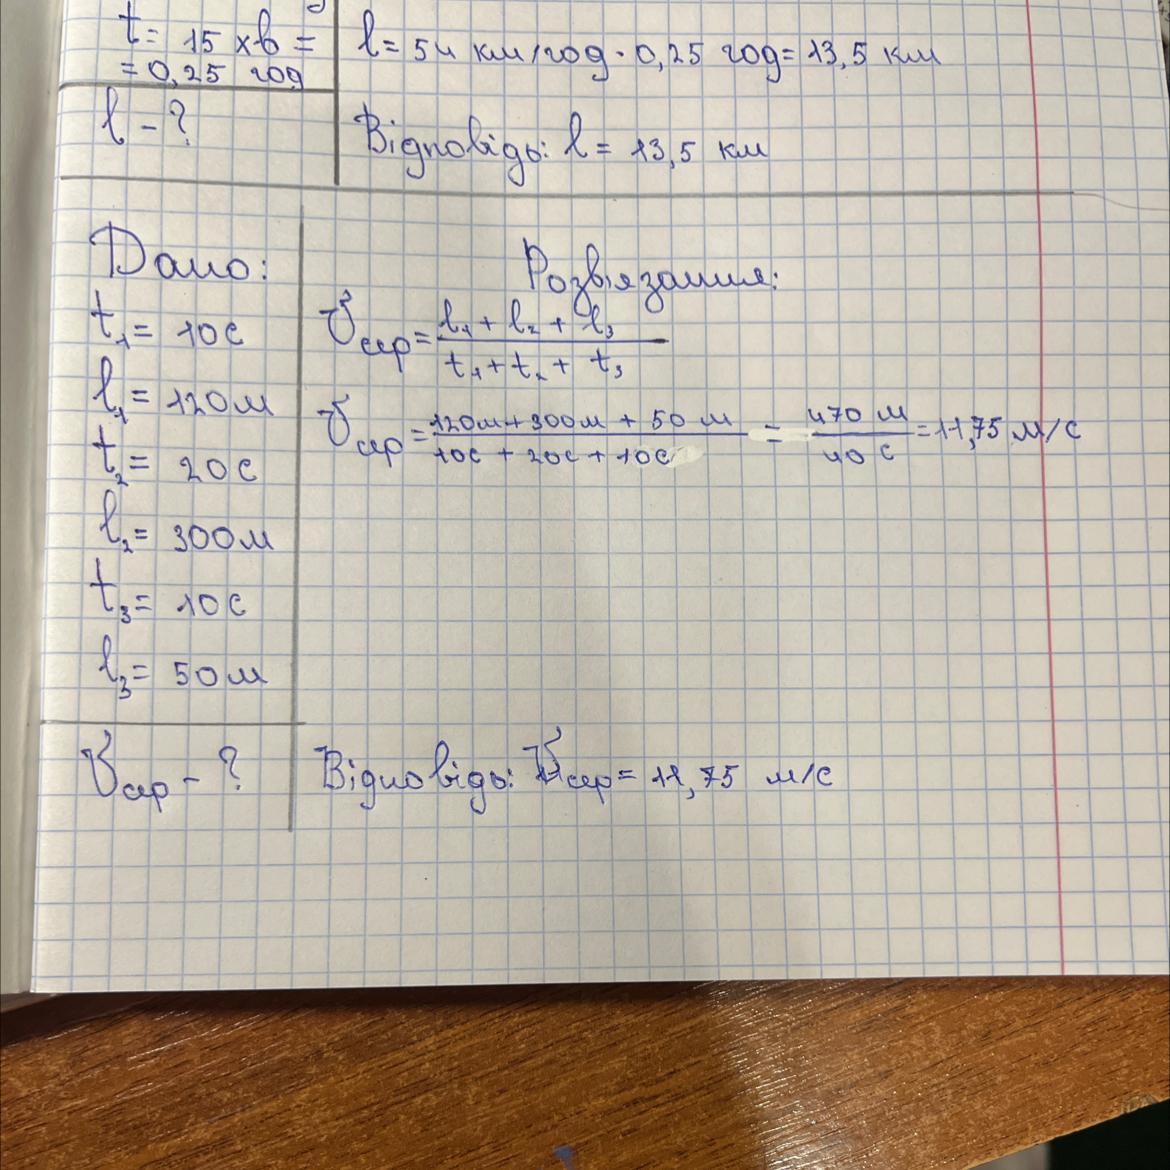 t = 15 хв =
= 0,25 год
l = 54 км/год · 0,25 год = 13,5 км
l - ?
Відповідь: l = 13,5 км
Дано:
Розв'язання:
t₁ = 10 с
l₁ = 120 м
t₂ = 20 с
l₂ = 300 м
t₃ = 10 с
l₃ = 50 м
V⃗сер = (l₁ + l₂ + l₃) / (t₁ + t₂ + t₃)
Vсер = (120м + 300м + 50 м) / (10с + 20с + 10с) = 470 м / 40 с = 11,75 м/с
Vсер - ?
Відповідь: Vсер = 11,75 м/с